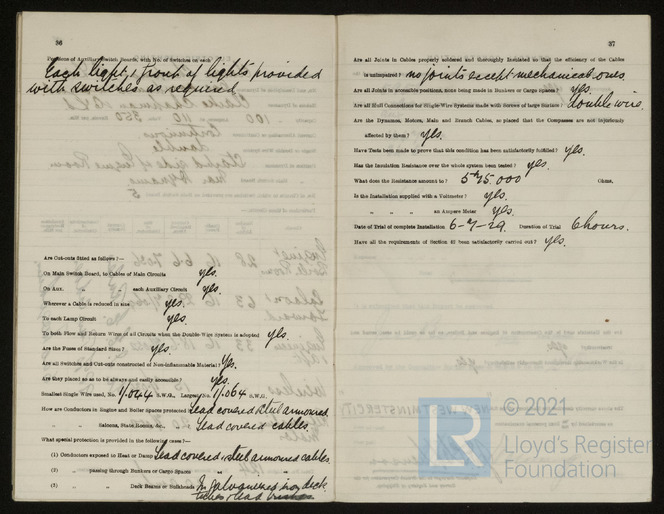 36
Positions of Auxiliary Switch Boards, with No. of Switches on each
Each light, & front of lights provided
with switches as required
Are Cut-outs fitted as follows?—
On Main Switch Board, to Cables of Main Circuits yes.
On Aux. " " each Auxiliary Circuit yes.
Wherever a Cable is reduced in size yes.
To each Lamp Circuit yes.
To both Flow and Return Wires of all Circuits when the Double Wire System is adopted yes.
Are the Fuses of Standard Sizes? yes.
Are all Switches and Cut-outs constructed of Non-inflammable Material? Yes.
Are they placed so as to be always and easily accessible? yes.
Smallest Single Wire used, No. 1/.044 S.W.G., Largest, No. 1/.064 S.W.G.
How are Conductors in Engine and Boiler Spaces protected Lead covered & steel armoured.
" Saloons, State Rooms, &c., " Lead covered cables.
What special protection is provided in the following cases?—
(1) Conductors exposed to Heat or Damp Lead covered & steel armoured cables.
(2) " passing through Bunkers or Cargo Spaces "
(3) " " Deck Beams or Bulkheads In galvanised iron deck
tubes & lead
37
Are all Joints in Cables properly soldered and thoroughly insulated so that the efficiency of the Cables
is unimpaired? no joints except mechanical ones.
Are all Joints in accessible positions, none being made in Bunkers or Cargo Spaces? yes.
Are all Hull Connections for Single-Wire Systems made with Screws of large Surface? double wire.
Are the Dynamos, Motors, Main and Branch Cables, so placed that the Compasses are not injuriously
affected by them? yes.
Have Tests been made to prove that this condition has been satisfactorily fulfilled? yes.
Has the Insulation Resistance over the whole system been tested? yes.
What does the Resistance amount to? Ohms.
Is the Installation supplied with a Voltmeter? yes.
" " " an Ampere Meter yes.
Date of Trial of complete Installation 6-7-29. Duration of Trial 6 hours.
Have all the requirements of Section 42 been satisfactorily carried out? yes.
© 2021
LR
Lloyd's Register
Foundation